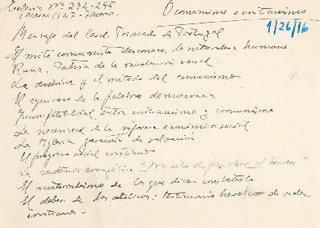 Ecclesia Nº 294-295
O comunismo o cristianismo
1 Marzo 1947
1/26/16
Mensaje del Card. Patriarca de Portugal
El mito comunista desconoce la naturaleza humana
Rusia, Patria de la revolución social
La doctrina y el método del comunismo
El equívoco de la palabra democracia
Incompatibilidad entre cristianismo y comunismo
La necesidad de la reforma económico social
La Iglesia garantía de salvación
El progreso social cristiano
La sentencia evangélica "No solo de pan vive el hombre"
El materialismo de los que dicen
El deber de los católicos: testimonio de vida
cristiana